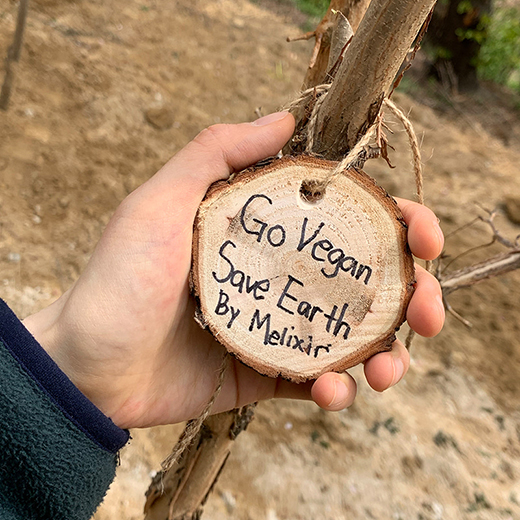 Go Vegan
Save Earth
By Melixir